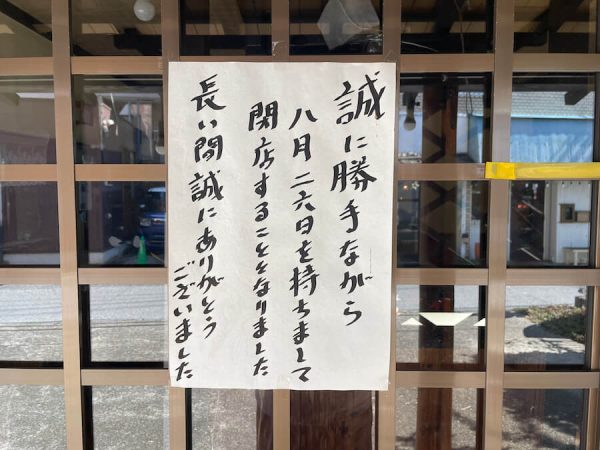 誠に勝手ながら
八月二六日を持ちまして
閉店することとなりました
長い間誠にありがとう
ございました